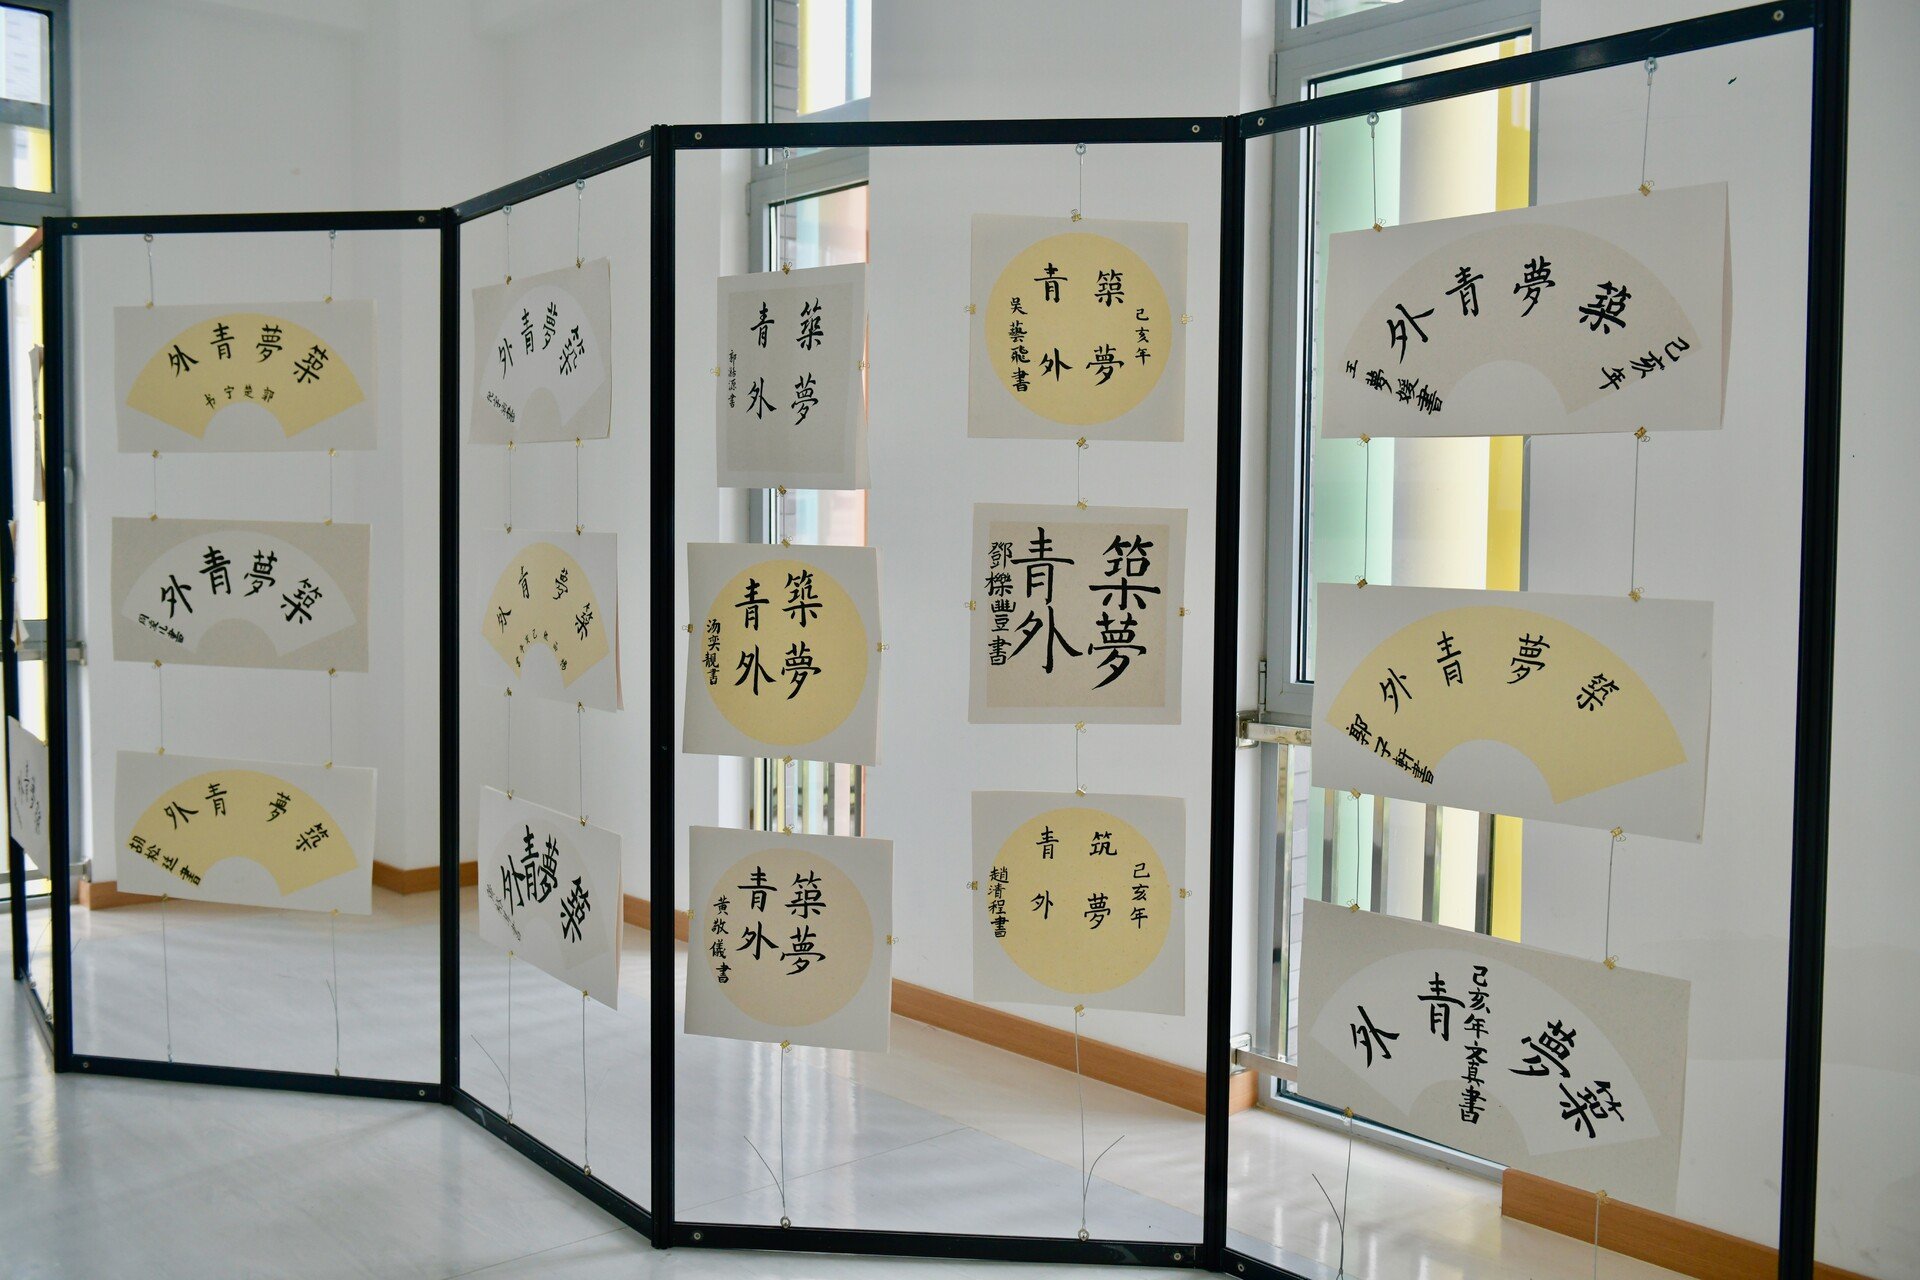 築夢青外
郭楚宁书
築夢青外
築夢青外
胡松廷書
築夢青外
築夢青外
築夢青外
築夢
青外
築夢
青外
汤奕靓書
築夢
青外
黃敬儀書
己亥年
築夢
青外
吴藝飛書
築夢
青外
鄧櫟豐書
己亥年
筑夢
青外
趙清程書
築夢青外
己亥年
王夢媛書
築夢青外
郭子軒書
築夢青外
己亥年文真書